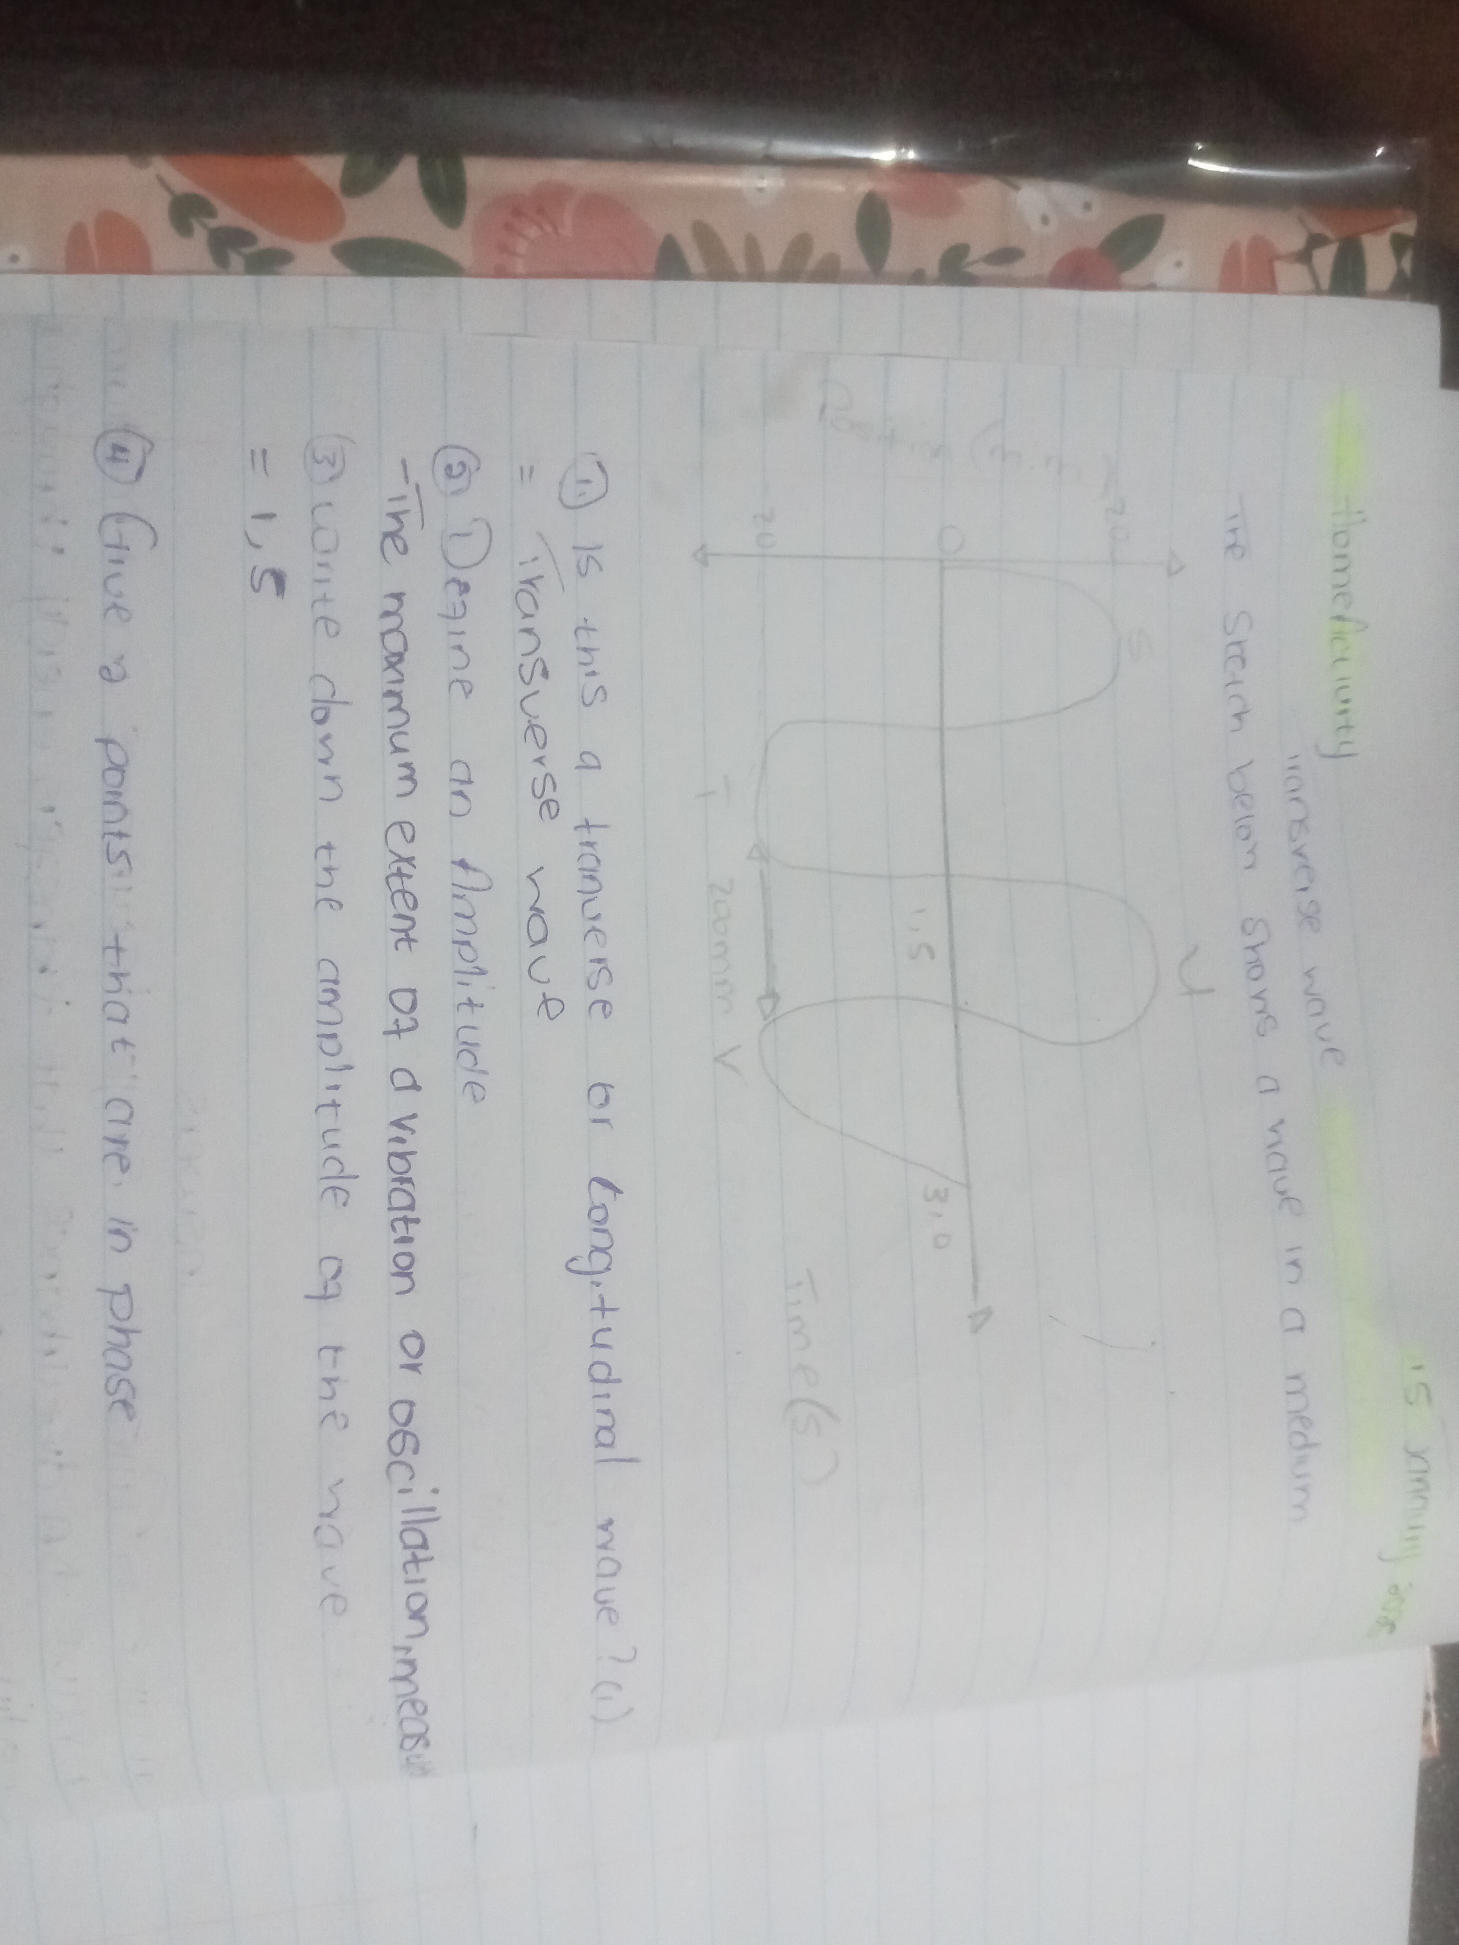 15 January
Home Activity
Transverse wave
The Sketch below shows a wave in a medium
20
S
U
0
1,5
3,0
20
T
200mm
V
Time(s)
① Is this a tranverse or Longitudinal wave? (1)
= Transverse wave
② ① Define an Amplitude
- The maximum extent of a vibration or oscillation, measu
③ Write down the amplitude of the wave
= 1,5
④ Give 2 points that are in phase